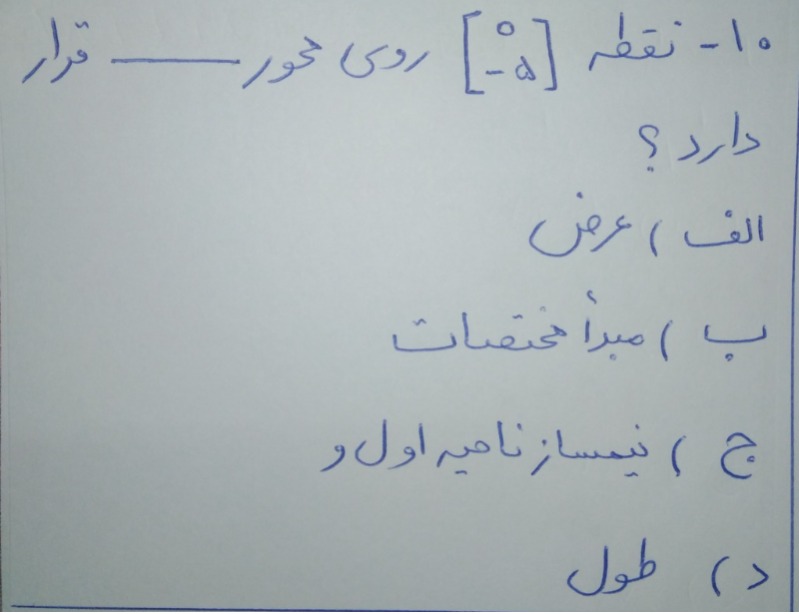 ۱۰- نقطه [۰ -۵] روی محور ــــــ قرار
دارد ؟
الف ) عرض
ب ) مبدأ مختصات
ج ) نیمساز ناحیه اول و
د ) طول